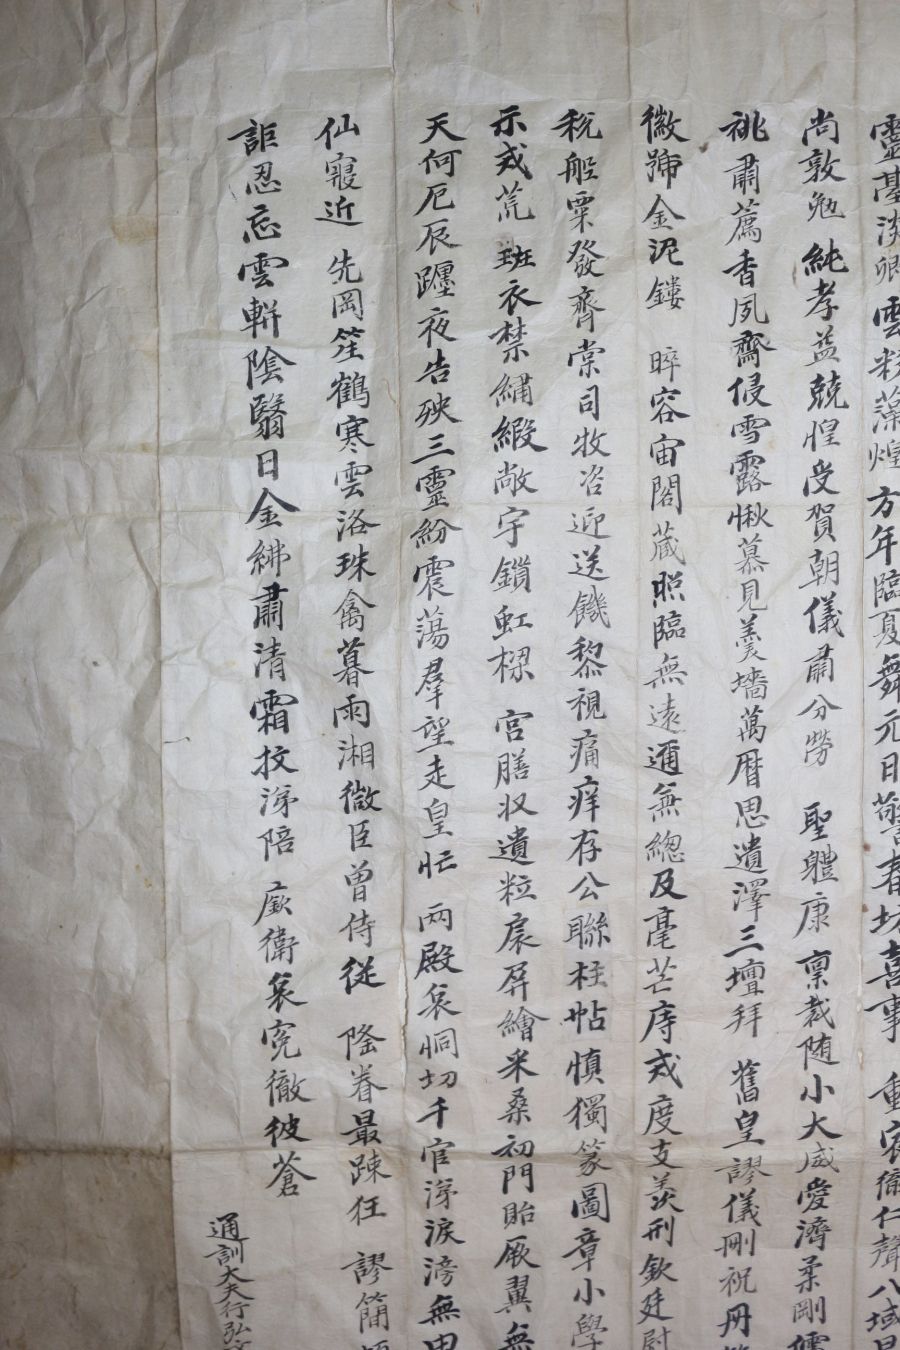 靈基淡卿雲彩藻煌 方年臨夏舞元日警春坊喜事 重宸衞仁聲八域
尚敦勉 純孝益兢惶受賀朝儀肅分勞 聖體康 稟裁随小大威愛濟柔剛
祧肅薦香夙齋侵雪露愀慕見羹墻萬曆思遺澤三壇拜 舊皇謬儀刪祝冊
徽號金泥鏤 睟容宙閣蔵照臨無遠邇無總及毫芒庤戎度支羨刑欽廷尉
稅船粟發齊棠司牧咨迎送饑黎視痛痒存公聯柱帖愼獨篆圖章小學
示戎荒 班衣禁繡緞敞宇鎖虹樑 宮膳収遺粒扆屏繪采桑初門貽厥翼無
天何厄辰躔夜告殃三靈紛震蕩羣望走皇忙 兩殿哀恫切千官涕淚滂無
仙寢近 先岡笙鶴寒雲洛珠禽暮雨湘微臣曾侍從 隆眷最踈狂 謬簡
詎忍忘雲軿陰翳日金紼肅清霜抆涕陪 廞衛哀寃徹彼蒼
通訓大夫行弘